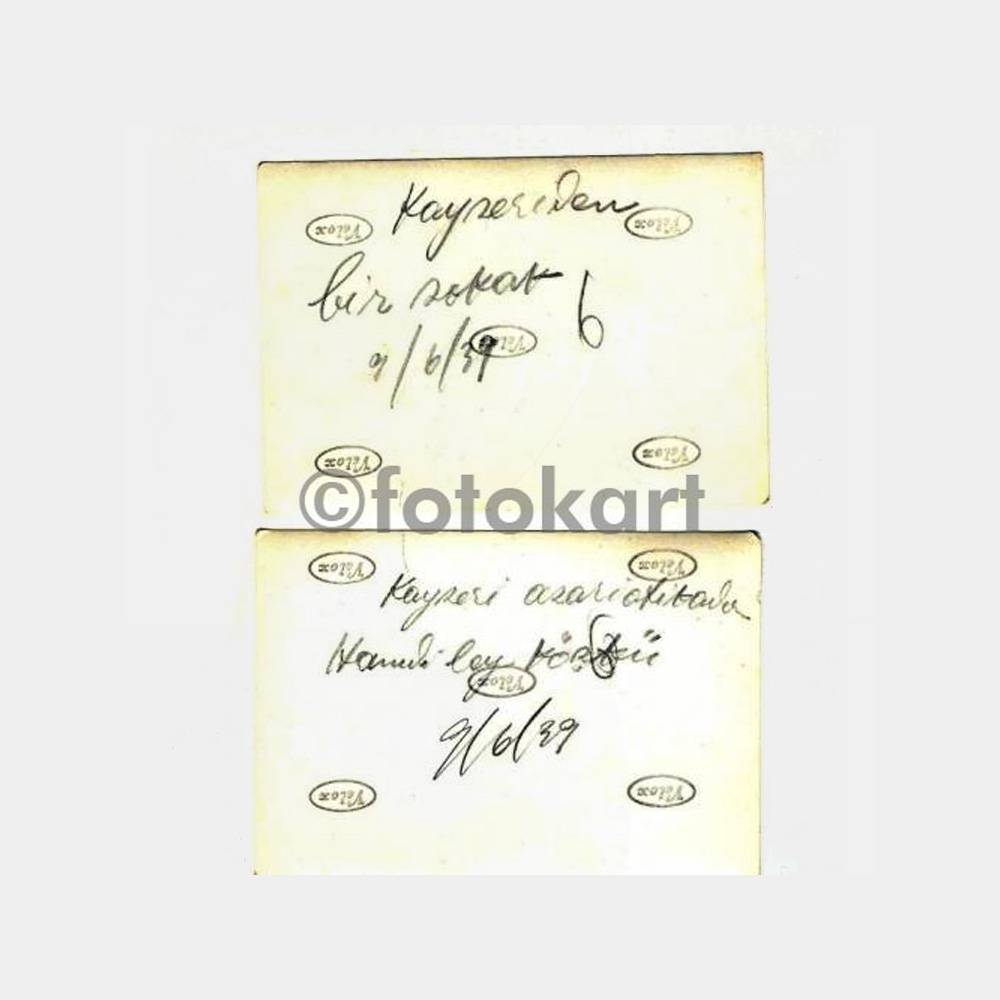 Kayseriden
Velox Velox
bir sokak
6
9/6/39
Velox
Velox Velox
©fotokart
Velox Velox
Kayseri asariatikada
Hamdi bey köşkü
6
Velox
9/6/39
Velox Velox